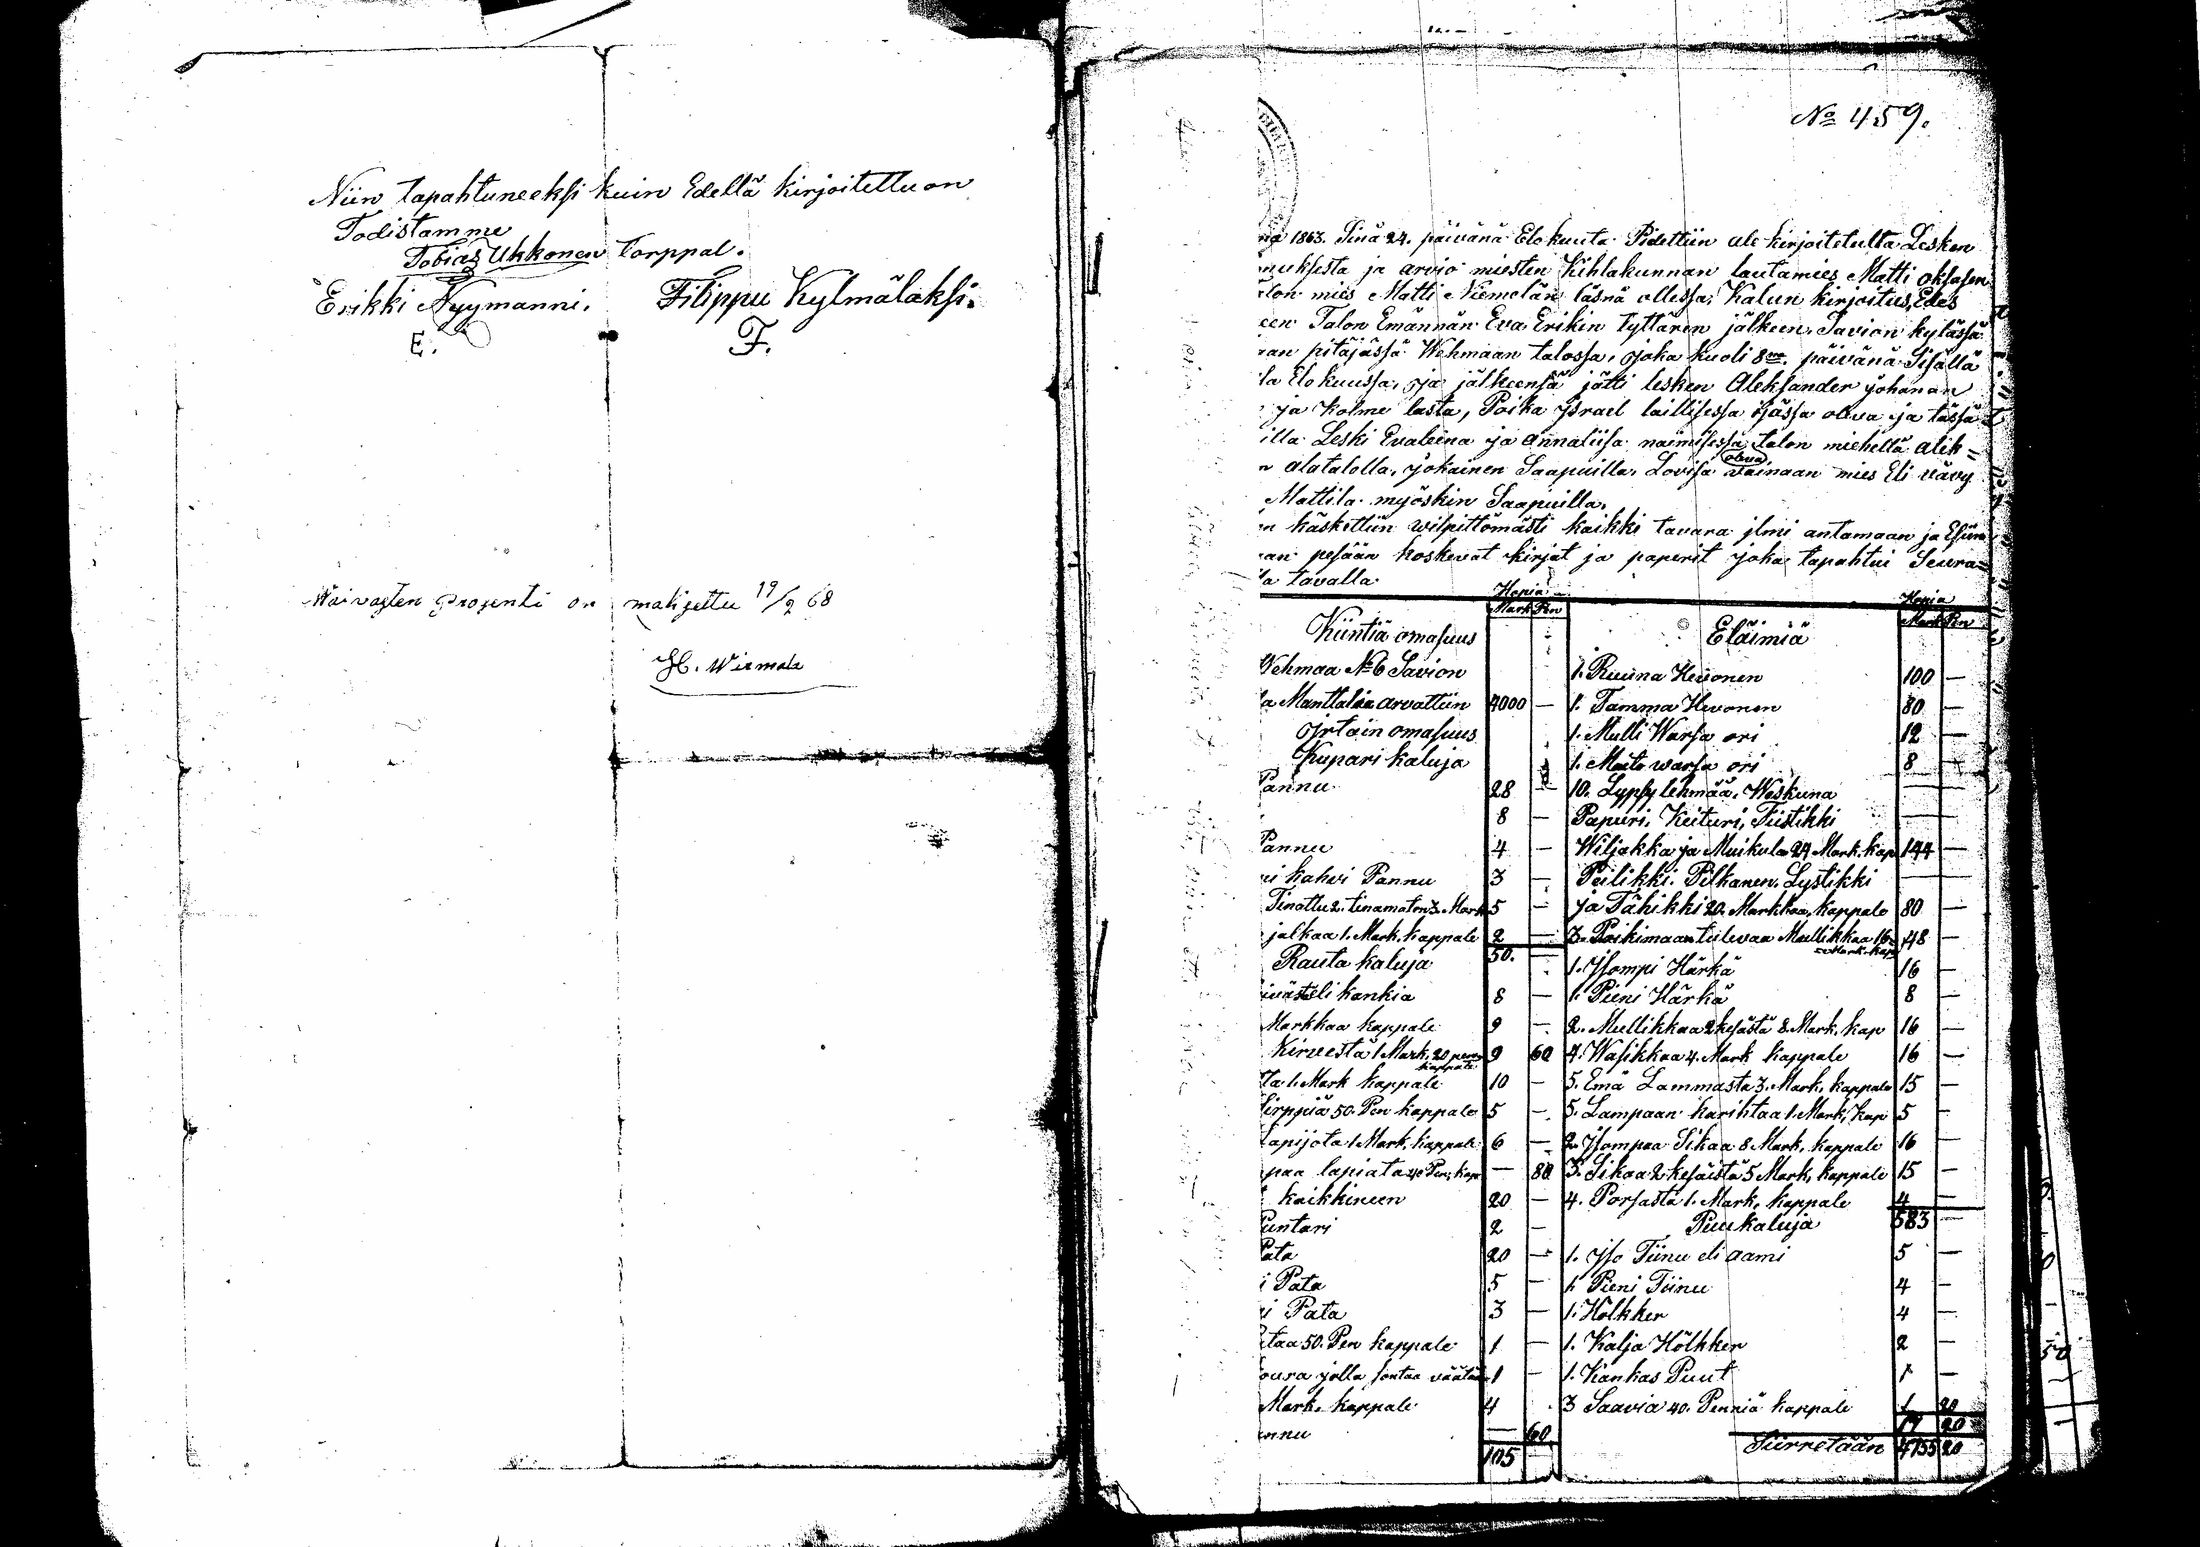 Niin tapahtuneeksi kuin Edellä kirjoitettu on
Todistamme
Tobias Ukkonen Torppal.
Erikki Nyymanni. Filippu Kylmälaksi.
E. F.
Waivasten prosenti on maksettu 19/2 68
H. Wirmala
No 459.
na 1863. Sinä 24. päivänä Elokuuta Pidettiin ale kirjoitetulta Lesken
nuksesta ja arvio miesten Kihlakunnan lautamies Matti oksasen
lon mies Matti Niemelän läsnä ollessa, Kalun kirjoitus, Edes
een Talon Emännän Eva Erikin tyttären jälkeen, Savion kylässä
ran pitäjässä Wehmaan talossa, joka kuoli 8na päivänä Sisällä
la Elokuussa, ja jälkeensä jätti lesken Aleksander johanan
ja kolme lasta, Poika jsrael laillisessa jjässä oleva ja tässä
illa Leski Evaleena ja Annaliisa naimisessa oleva talon miehellä alek=
n alatalolla, jokainen Saapuilla. Lovisa vainaan mies Eli vävy
Mattila myöskin Saapuilla.
n käskettiin wilpittömästi kaikki tavara jlmi antamaan ja Esiin
an pesään koskevat kirjat ja paperit joka tapahtui Seura=
la tavalla
Hopia
Mark Pen
Kiintiä omasuus
Wehmaa No 6 Savion
la Manttalia arvattiin 4000 —
jrtain omasuus
Kupari kaluja
Pannu 28 —
8 —
Pannu 4 —
ri kahvi Pannu 3 —
Tinattu 2. tinamaton 3. Mark 5 —
jalkaa 1. Mark. kappale 2 —
50. —
Rauta kaluja
kankia 8 —
Markkaa kappale 9 —
Kirvestä 1 Mark. 20 pen kappale 9 60
ta 1. Mark kappale 10 —
Sirppiä 50. Pen kappale 5 —
lapijota 1 Mark. kappale 6 —
paa lapiata 40 Pen. kap — 80
kaikkineen 20 —
Puntari 2 —
Pata 20 —
i Pata 5 —
ri Pata 3 —
taa 50. Pen kappale 1 —
oura jolla sontaa väätää 1 —
Mark. kappale 4
annu — 60
105 —
Hopia
Mark Pen
Eläimiä
1. Ruuna Hevonen 100 —
1. Tamma Hevonen 80 —
1. Mulli Warsa ori 12 —
1. Maito warsa ori 8 —
10. Lypsy lehmää. Weskuna —
Papuri, Keituri, Tiistikki —
Wiljakka ja Muikula 24 Mark. kap 144 —
Peilikki. Pilkanen. Lystikki —
ja Tähikki 20. Markkaa kappale 80 —
3. Poikimaan tulevaa Mullikkaa 16. Mark. kap 48 —
1. jsompi Härkä 16 —
1. Pieni Härkä 8 —
2. Mullikkaa 2 kesästä 8. Mark. kap 16 —
4. Wasikkaa 4. Mark kappale 16 —
5. Emä Lammasta 3. Mark, kappale 15 —
5. Lampaan karihtaa 1. Mark, kap 5 —
2. jsompaa Sikaa 8 Mark, kappale 16 —
3. Sikaa 2 kesäistä 5 Mark, kappale 15 —
4. Porsasta 1. Mark, kappale 4 —
583 —
Puukaluja
1. jso Tiinu eli aami 5 —
1. Pieni Tiinu 4 —
1. Holkker 4 —
1. Kalja Hölkker 2 —
1. Kankas Puut 1 —
3 Saavia 40. Penniä kappale 1 20
17 20
Siirretään 4755 20